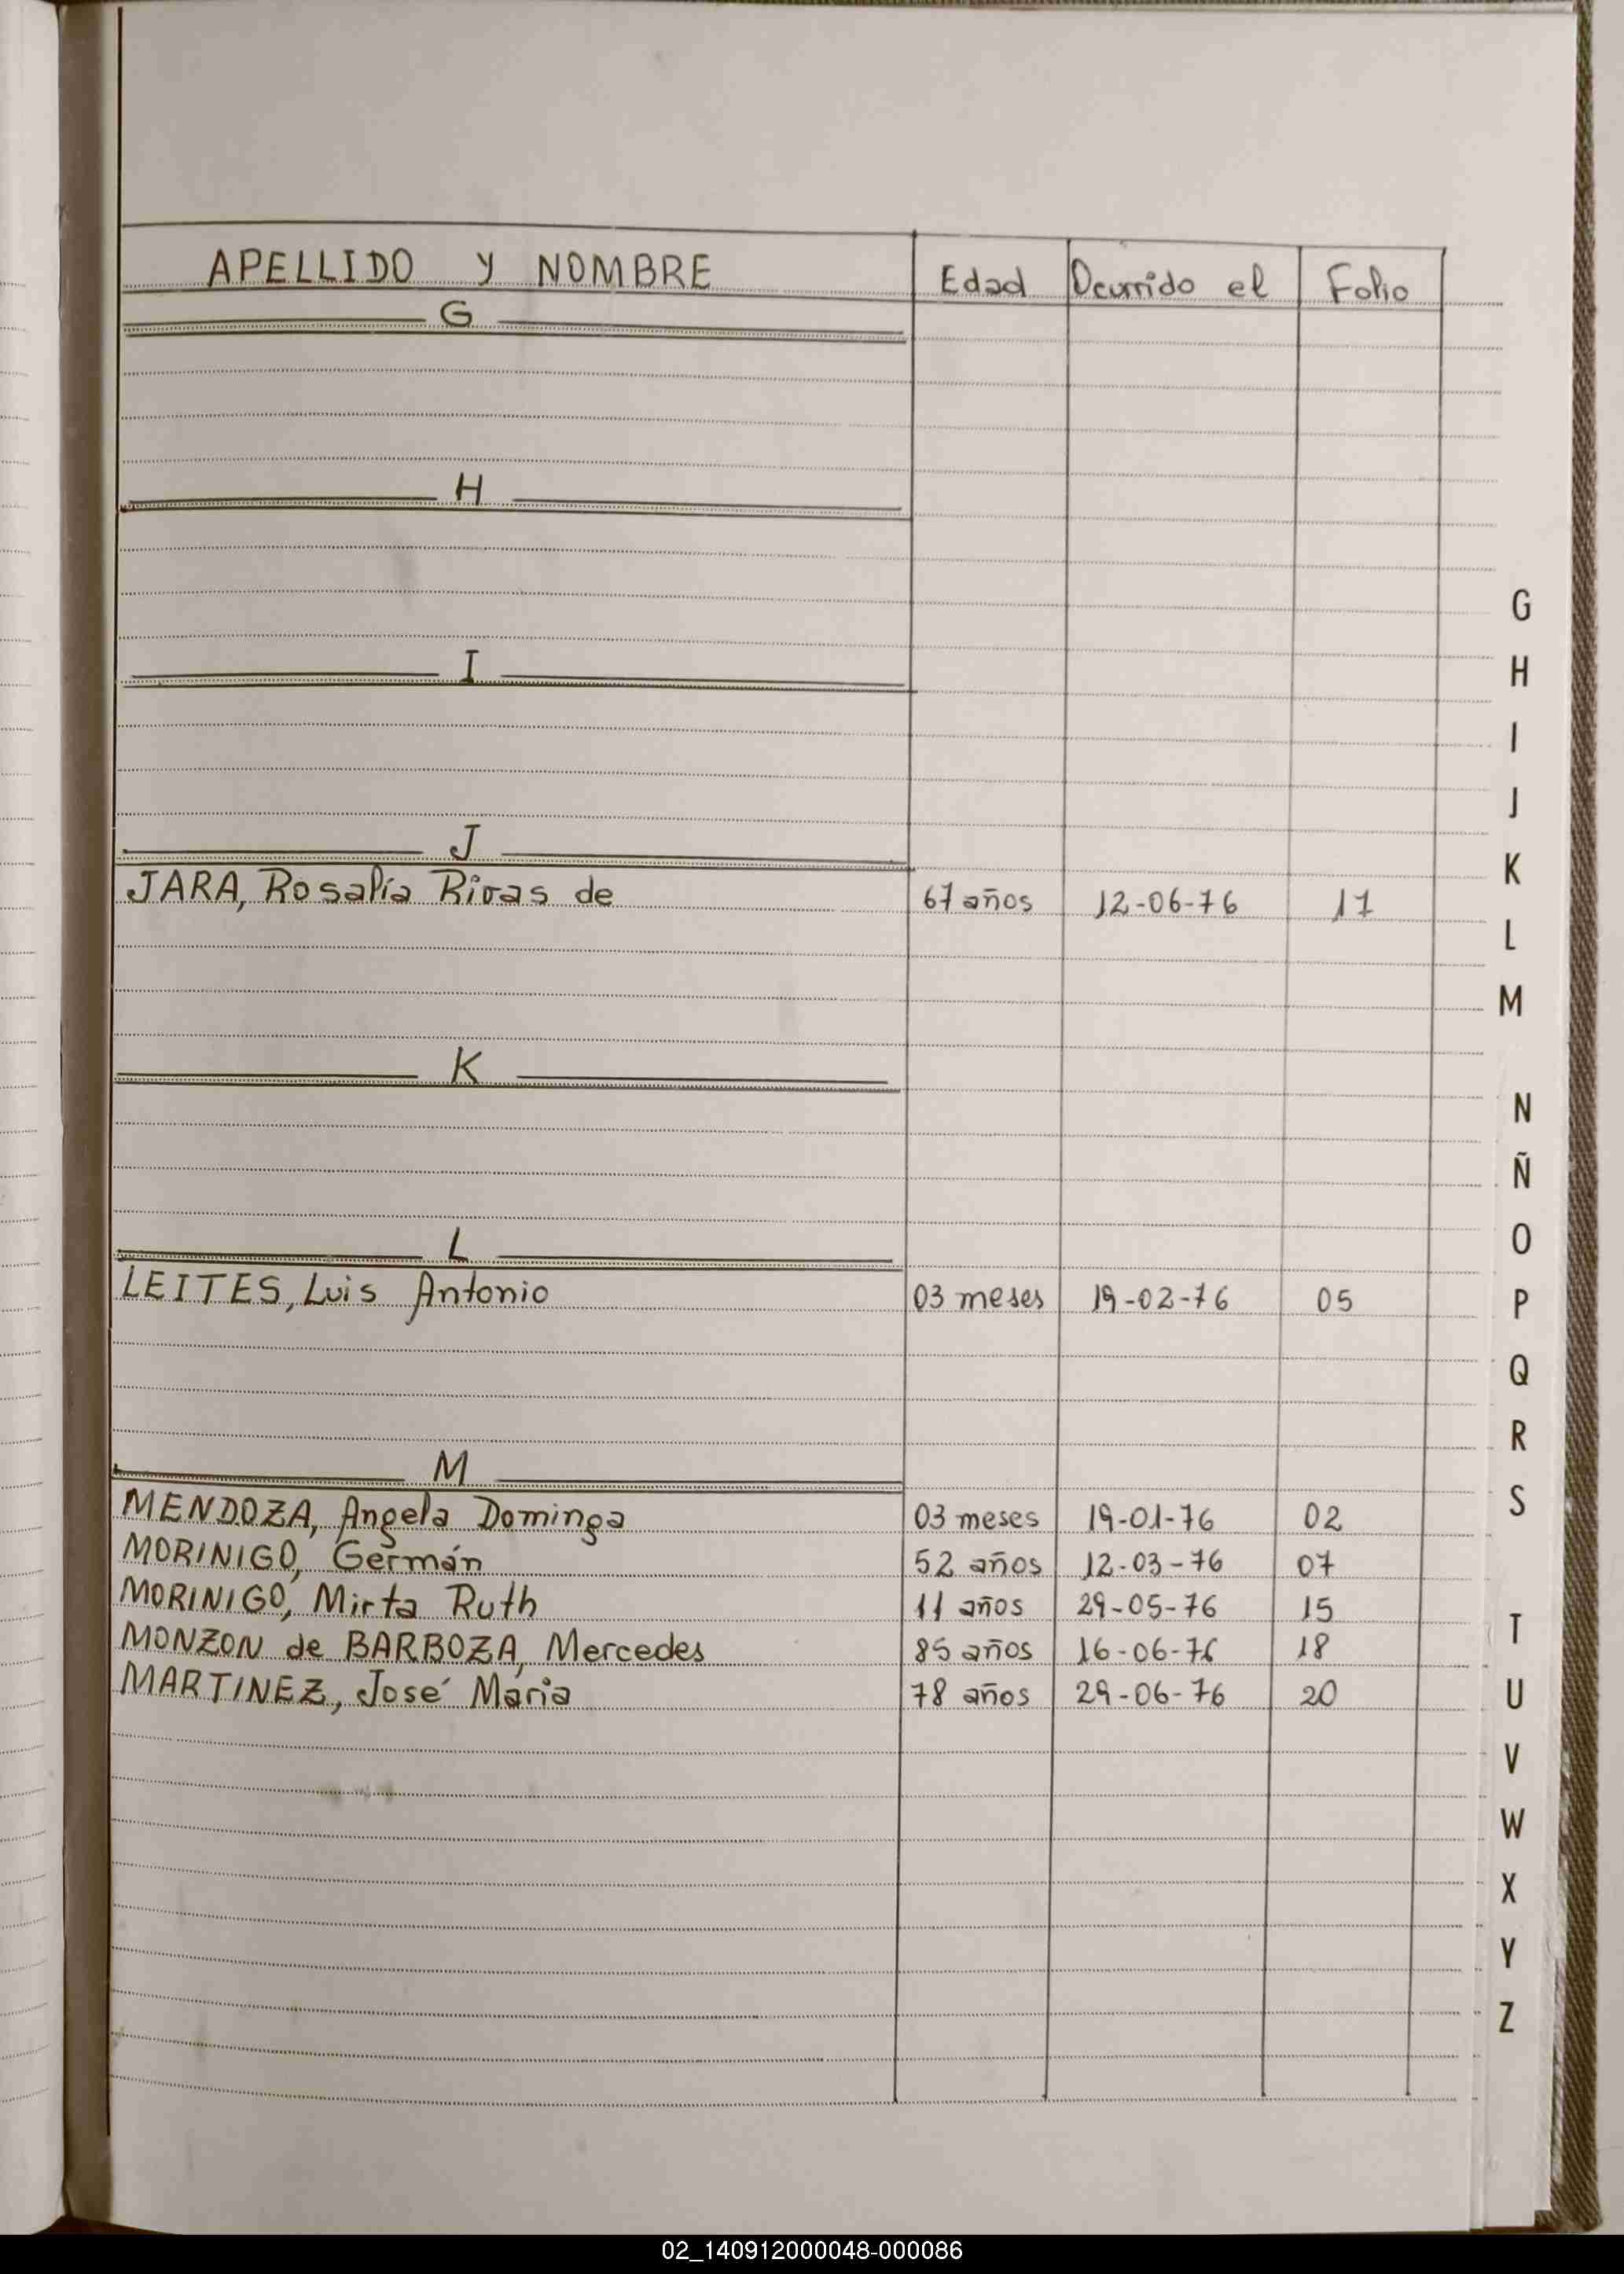 APELLIDO y NOMBRE Edad Ocurrido el Folio
G
H
I
J
JARA, Rosalía Rivas de 67 años 12-06-76 17
K
L
LEITES, Luis Antonio 03 meses 19-02-76 05
M
MENDOZA, Angela Dominga 03 meses 19-01-76 02
MORINIGO, Germán 52 años 12-03-76 07
MORINIGO, Mirta Ruth 11 años 29-05-76 15
MONZON de BARBOZA, Mercedes 85 años 16-06-76 18
MARTINEZ, José Maria 78 años 29-06-76 20
G
H
I
J
K
L
M
N
Ñ
O
P
Q
R
S
T
U
V
W
X
Y
Z
02_140912000048-000086